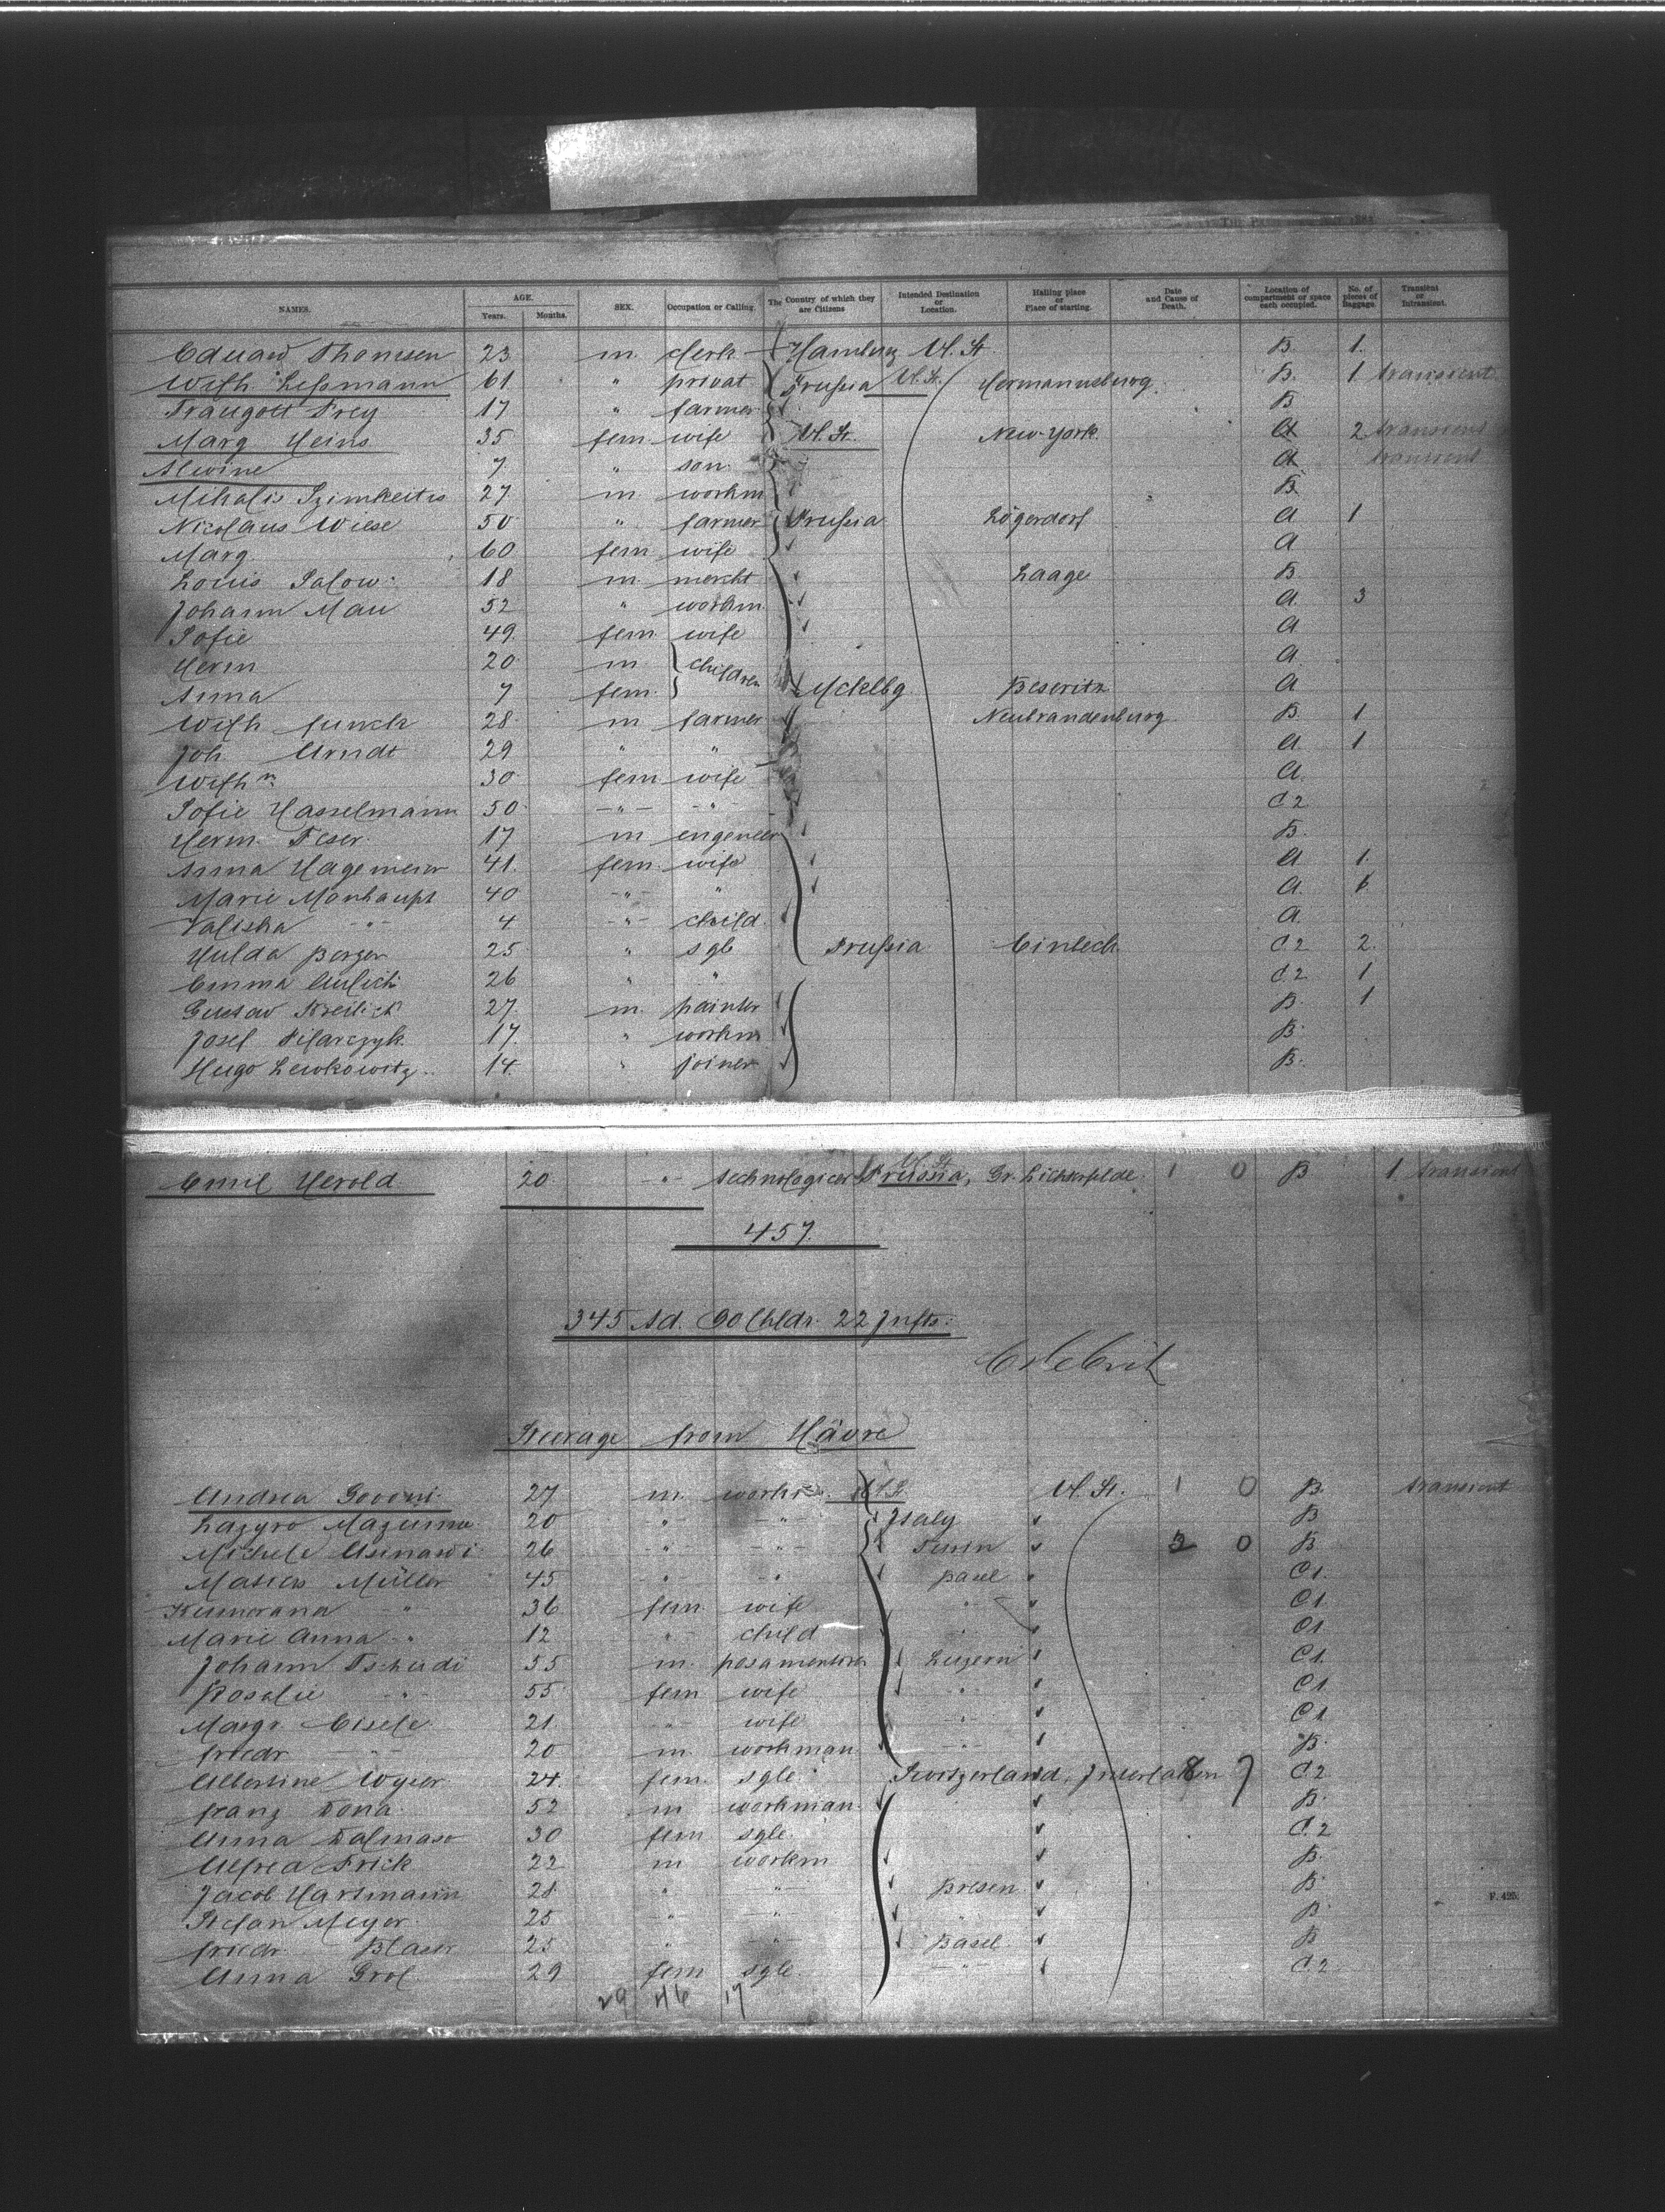 NAMES. AGE. Years. Months. SEX. Occupation or Calling. The Country of which they are Citizens Intended Destination or Location. Hailing place or Place of starting. Date and Cause of Death. Location of compartment or space each occupied. No. of pieces of Baggage. Transient or Intransient.
Eduard Thomsen 23 m clerk Hamburg U. St. B. 1.
Wilh. Lessmann 61 " privat Prussia U. St. Hermannsburg B. 1 transient
Traugott Frey 17 " farmer B
Marg Heins 35 fem wife U. St. New-York. A 2 transient
Alwine 7 " son. A transient
Mihalis 27 m workm B
Nicolaus Wiese 50 " farmer Prussia Lägerdorf A 1
Marg 60 fem wife A
Louis Salow 18 m mercht Laage B
Johann Mau 52 " workm. A. 3
Sofie 49. fem wife A
Herm 20 m children A
Anna 7 fem. Mcklbg Beseritz A
Wilh Junck 28 m farmer Neubrandenburg B 1
Joh. Arndt 29 " " A 1
Wilh n. 30 fem wife A.
Sofie Hasselmann 50 -"- -"- C 2
Herm. Feser. 17 m engeneer B.
Anna Hagemeier 41. fem. wife A 1.
Marie Monhaupt 40 -"- " A.
Valiska -"- 4 -"- child. A.
Hulda Berger 25 " sgl Prussia Einbeck C. 2 2.
Emma 26 " " C. 2 1
Gustav 27. m. painter B. 1
Josef Pilarczyk. 17. " workm B.
Hugo Lewkowitz 14. " joiner B.
Emil Herold 20. -"- technologicer U. St. Prussia, Gr. Lichterfelde 1 0 B 1 transient
457.
345 Ad. 90 Chldr. 22 Infts.
Steerage from Hàvre
Andrea Govoni. 27 m. workm. U. St. U. St. 1 0 B. transient
20 -"- -"- Italy B
Michele 26 -"- -"- Turin 3 0 B
Müller 45 -"- -"- Basel C 1.
-"- 36 fem wife " C 1.
Marie Anna -"- 12 -"- child C 1
Johann Tschudi 55 m. posamentirer Luzern C 1.
Rosalie -"- 55 fem wife -"- C 1
Margr. Eisele. 21. -"- wife -"- C 1
Friedr -"- 20 m. workman -"- B.
Albertine Wyser 24. fem. sgle. Switzerland, Interlaken 8 7 C. 2
Franz Dona. 52 m workman. B.
Anna Dalmaso 30 fem sgle. C. 2
Alfred Frick 22 m workm B.
Jacob Hartmann 28 " -"- Bresen B
Stefan Meyer. 25 " -"- " B.
Friedr. Blaser 25 " -"- Basel B
Anna Grol 29 fem sgle -"- C 2
29 46 17
F. 495.